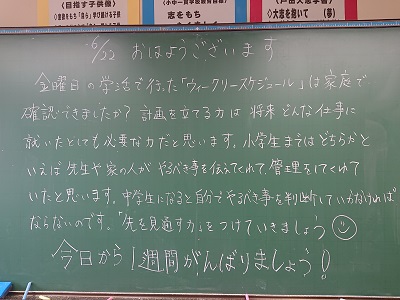 <目指す子供像>
◇意欲をもち「自ら」学び続ける子供
<小中一貫学校教育目標>
志をもち
◇大志を抱いて (夢)
6/22 おはようございます
金曜日の学活で行った「ウィークリースケジュール」は家庭で
確認できましたか? 計画を立てる力は 将来どんな仕事に
就いたとしても必要な力だと思います。小学生まではどちらかと
いえば先生や家の人が やるべき事を伝えてくれて、管理をしてくれて
いたと思います。中学生になると自分でやるべき事を判断していかなければ
ならないのです。「先を見通す力」をつけていきましょう
今日から1週間がんばりましょう!